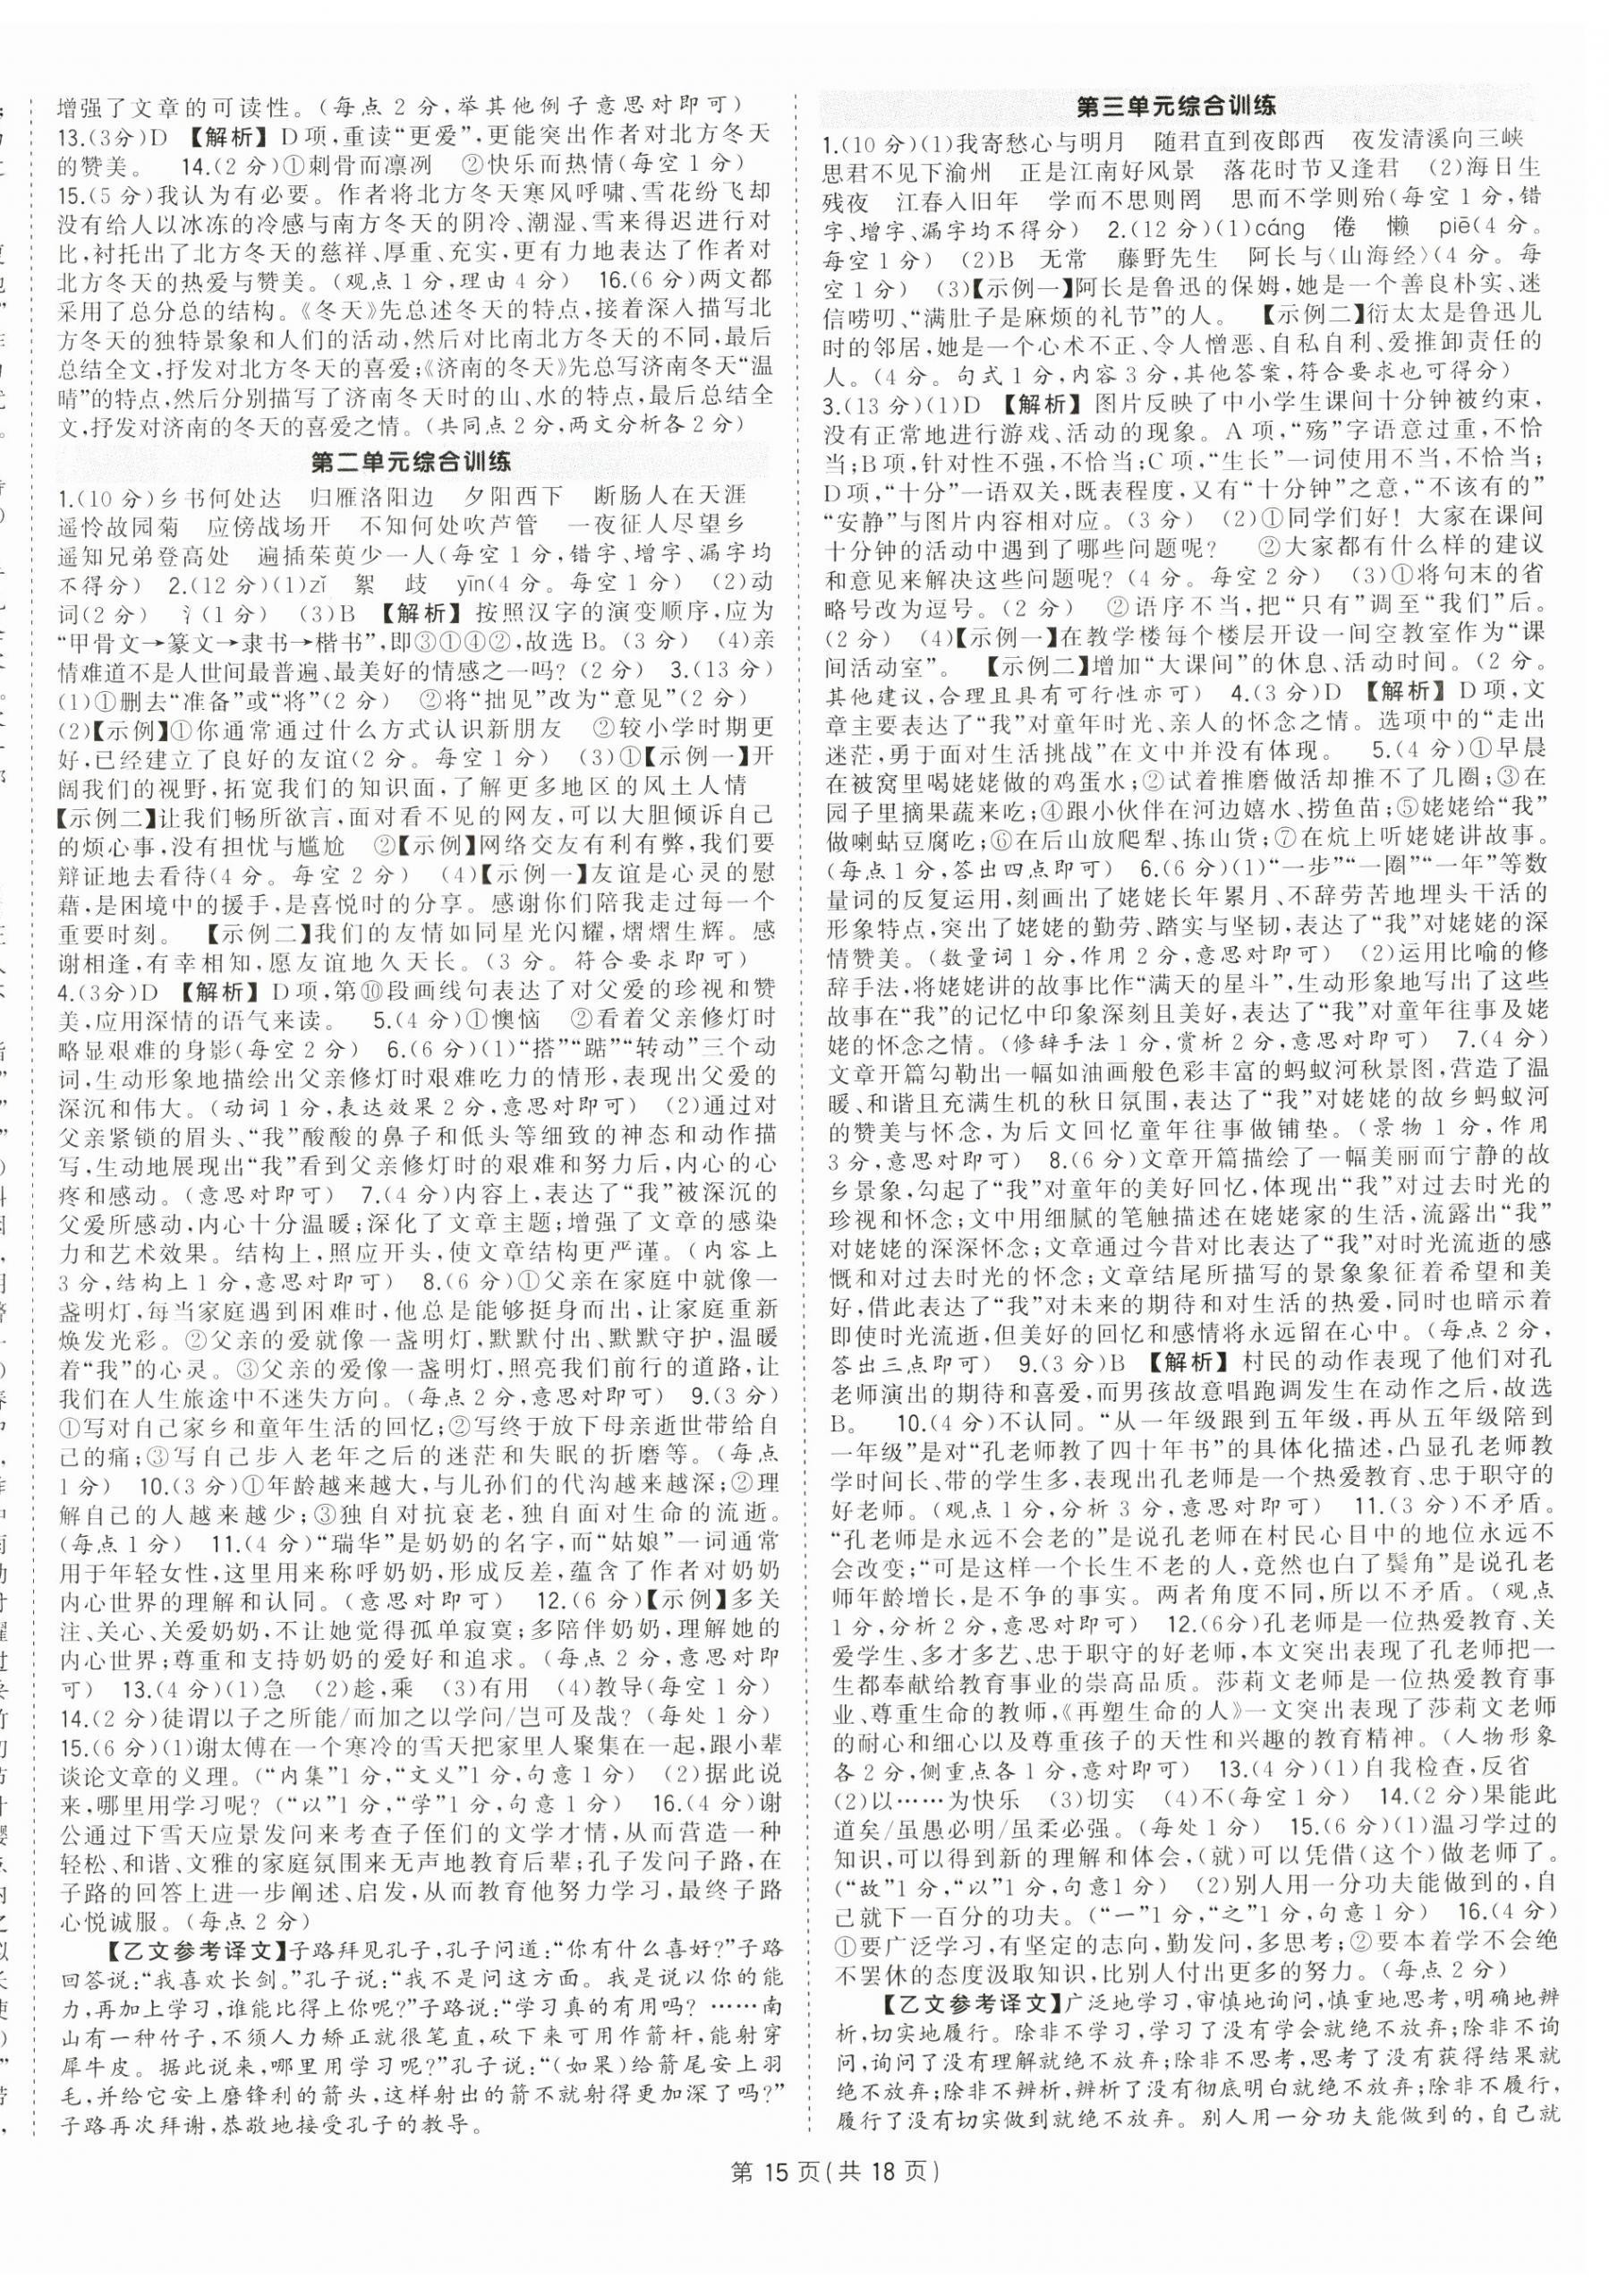 增强了文章的可读性。(每点 2 分,举其他例子意思对即可)
13.(3分)D 【解析】 D 项,重读“更爱”,更能突出作者对北方冬天
的赞美。 14.(2 分)①刺骨而凛冽 ②快乐而热情(每空 1 分)
15.(5 分)我认为有必要。作者将北方冬天寒风呼啸、雪花纷飞却
没有给人以冰冻的冷感与南方冬天的阴冷、潮湿、雪来得迟进行对
比,衬托出了北方冬天的慈祥、厚重、充实,更有力地表达了作者对
北方冬天的热爱与赞美。(观点 1 分,理由 4 分) 16.(6 分)两文都
采用了总分总的结构。《冬天》先总述冬天的特点,接着深入描写北
方冬天的独特景象和人们的活动,然后对比南北方冬天的不同,最后
总结全文,抒发对北方冬天的喜爱;《济南的冬天》先总写济南冬天“温
晴”的特点,然后分别描写了济南冬天时的山、水的特点,最后总结全
文,抒发对济南的冬天的喜爱之情。(共同点 2 分,两文分析各 2 分)
第二单元综合训练
1.(10 分)乡书何处达 归雁洛阳边 夕阳西下 断肠人在天涯
遥怜故园菊 应傍战场开 不知何处吹芦管 一夜征人尽望乡
遥知兄弟登高处 遍插茱萸少一人(每空 1 分,错字、增字、漏字均
不得分) 2.(12 分)(1)zǐ 絮 歧 yīn(4 分。每空 1 分) (2)动
词(2 分) 氵(1 分) (3)B 【解析】 按照汉字的演变顺序,应为
“甲骨文→篆文→隶书→楷书”,即③①④②,故选 B。(3 分) (4)亲
情难道不是人世间最普遍、最美好的情感之一吗? (2 分) 3.(13 分)
(1)①删去“准备”或“将”(2 分) ②将“拙见”改为“意见”(2 分)
(2)【示例】①你通常通过什么方式认识新朋友 ②较小学时期更
好,已经建立了良好的友谊(2 分。每空 1 分) (3)①【示例一】开
阔我们的视野,拓宽我们的知识面,了解更多地区的风土人情
【示例二】让我们畅所欲言,面对看不见的网友,可以大胆倾诉自己
的烦心事,没有担忧与尴尬 ②【示例】网络交友有利有弊,我们要
辩证地去看待(4 分。每空 2 分) (4)【示例一】友谊是心灵的慰
藉,是困境中的援手,是喜悦时的分享。感谢你们陪我走过每一个
重要时刻。 【示例二】我们的友情如同星光闪耀,熠熠生辉。感
谢相逢,有幸相知,愿友谊地久天长。(3 分。符合要求即可)
4.(3分)D 【解析】 D 项,第⑩段画线句表达了对父爱的珍视和赞
美,应用深情的语气来读。 5.(4 分)①懊恼 ②看着父亲修灯时
略显艰难的身影(每空 2 分) 6.(6 分)(1)“搭”“踮”“转动”三个动
词,生动形象地描绘出父亲修灯时艰难吃力的情形,表现出父爱的
深沉和伟大。(动词 1 分,表达效果 2 分,意思对即可) (2)通过对
父亲紧锁的眉头、“我”酸酸的鼻子和低头等细致的神态和动作描
写,生动地展现出“我”看到父亲修灯时的艰难和努力后,内心的心
疼和感动。(意思对即可) 7.(4 分)内容上,表达了“我”被深沉的
父爱所感动,内心十分温暖;深化了文章主题;增强了文章的感染
力和艺术效果。结构上,照应开头,使文章结构更严谨。(内容上
3 分,结构上 1 分,意思对即可) 8.(6 分)①父亲在家庭中就像一
盏明灯,每当家庭遇到困难时,他总是能够挺身而出,让家庭重新
焕发光彩。②父亲的爱就像一盏明灯,默默付出、默默守护,温暖
着“我”的心灵。③父亲的爱像一盏明灯,照亮我们前行的道路,让
我们在人生旅途中不迷失方向。(每点 2 分,意思对即可) 9.(3 分)
①写对自己家乡和童年生活的回忆;②写终于放下母亲逝世带给自
己的痛;③写自己步入老年之后的迷茫和失眠的折磨等。(每点
1 分) 10.(3 分)①年龄越来越大,与儿孙们的代沟越来越深;②理
解自己的人越来越少;③独自对抗衰老,独自面对生命的流逝。
(每点 1 分) 11.(4 分)“瑞华”是奶奶的名字,而“姑娘”一词通常
用于年轻女性,这里用来称呼奶奶,形成反差,蕴含了作者对奶奶
内心世界的理解和认同。(意思对即可) 12.(6 分)【示例】多关
注、关心、关爱奶奶,不让她觉得孤单寂寞;多陪伴奶奶,理解她的
内心世界;尊重和支持奶奶的爱好和追求。(每点 2 分,意思对即
可) 13.(4 分)(1)急 (2)趁,乘 (3)有用 (4)教导(每空 1 分)
14.(2 分)徒谓以子之所能/而加之以学问/岂可及哉? (每处 1 分)
15.(6 分)(1)谢太傅在一个寒冷的雪天把家里人聚集在一起,跟小辈
谈论文章的义理。(“内集”1 分,“文义”1 分,句意 1 分) (2)据此说
来,哪里用学习呢? (“以”1 分,“学”1 分,句意 1 分) 16.(4 分)谢
公通过下雪天应景发问来考查子侄们的文学才情,从而营造一种
轻松、和谐、文雅的家庭氛围来无声地教育后辈;孔子发问子路,在
子路的回答上进一步阐述、启发,从而教育他努力学习,最终子路
心悦诚服。(每点 2 分)
【乙文参考译文】子路拜见孔子,孔子问道:“你有什么喜好?”子路
回答说:“我喜欢长剑。”孔子说:“我不是问这方面。我是说以你的能
力,再加上学习,谁能比得上你呢?”子路说:“学习真的有用吗? ……南
山有一种竹子,不须人力矫正就很笔直,砍下来可用作箭杆,能射穿
犀牛皮。据此说来,哪里用学习呢?”孔子说:“(如果)给箭尾安上羽
毛,并给它安上磨锋利的箭头,这样射出的箭不就射得更加深了吗?”
子路再次拜谢,恭敬地接受孔子的教导。
第三单元综合训练
1.(10 分)(1)我寄愁心与明月 随君直到夜郎西 夜发清溪向三峡
思君不见下渝州 正是江南好风景 落花时节又逢君 (2)海日生
残夜 江春入旧年 学而不思则罔 思而不学则殆(每空 1 分,错
字、增字、漏字均不得分) 2.(12 分)(1)cáng 倦 懒 piē(4 分。
每空 1 分) (2)B 无常 藤野先生 阿长与〈山海经〉(4 分。每
空 1 分) (3)【示例一】阿长是鲁迅的保姆,她是一个善良朴实、迷
信唠叨、“满肚子是麻烦的礼节”的人。 【示例二】衍太太是鲁迅儿
时的邻居,她是一个心术不正、令人憎恶、自私自利、爱推卸责任的
人。(4 分。句式 1 分,内容 3 分,其他答案,符合要求也可得分)
3.(13 分)(1)D 【解析】 图片反映了中小学生课间十分钟被约束,
没有正常地进行游戏、活动的现象。A 项,“殇”字语意过重,不恰
当;B 项,针对性不强,不恰当;C 项,“生长”一词使用不当,不恰当;
D 项,“十分”一语双关,既表程度,又有“十分钟”之意,“不该有的”
“安静”与图片内容相对应。(3 分) (2)①同学们好! 大家在课间
十分钟的活动中遇到了哪些问题呢? ②大家都有什么样的建议
和意见来解决这些问题呢? (4 分。每空 2 分) (3)①将句末的省
略号改为逗号。(2 分) ②语序不当,把“只有”调至“我们”后。
(2 分) (4)【示例一】在教学楼每个楼层开设一间空教室作为“课
间活动室”。 【示例二】增加“大课间”的休息、活动时间。(2 分。
其他建议,合理且具有可行性亦可) 4.(3 分)D 【解析】 D 项,文
章主要表达了“我”对童年时光、亲人的怀念之情。选项中的“走出
迷茫,勇于面对生活挑战”在文中并没有体现。 5.(4 分)①早晨
在被窝里喝姥姥做的鸡蛋水;②试着推磨做活却推不了几圈;③在
园子里摘果蔬来吃;④跟小伙伴在河边嬉水、捞鱼苗;⑤姥姥给“我”
做喇蛄豆腐吃;⑥在后山放爬犁、拣山货;⑦在炕上听姥姥讲故事。
(每点 1 分,答出四点即可) 6.(6 分)(1)“一步”“一圈”“一年”等数
量词的反复运用,刻画出了姥姥长年累月、不辞劳苦地埋头干活的
形象特点,突出了姥姥的勤劳、踏实与坚韧,表达了“我”对姥姥的深
情赞美。(数量词 1 分,作用 2 分,意思对即可) (2)运用比喻的修
辞手法,将姥姥讲的故事比作“满天的星斗”,生动形象地写出了这些
故事在“我”的记忆中印象深刻且美好,表达了“我”对童年往事及姥
姥的怀念之情。(修辞手法 1 分,赏析 2 分,意思对即可) 7.(4 分)
文章开篇勾勒出一幅如油画般色彩丰富的蚂蚁河秋景图,营造了温
暖、和谐且充满生机的秋日氛围,表达了“我”对姥姥的故乡蚂蚁河
的赞美与怀念,为后文回忆童年往事做铺垫。(景物 1 分,作用
3 分,意思对即可) 8.(6 分)文章开篇描绘了一幅美丽而宁静的故
乡景象,勾起了“我”对童年的美好回忆,体现出“我”对过去时光的
珍视和怀念;文中用细腻的笔触描述在姥姥家的生活,流露出“我”
对姥姥的深深怀念;文章通过今昔对比表达了“我”对时光流逝的感
慨和对过去时光的怀念;文章结尾所描写的景象象征着希望和美
好,借此表达了“我”对未来的期待和对生活的热爱,同时也暗示着
即使时光流逝,但美好的回忆和感情将永远留在心中。(每点 2 分,
答出三点即可) 9.(3 分)B 【解析】 村民的动作表现了他们对孔
老师演出的期待和喜爱,而男孩故意唱跑调发生在动作之后,故选
B。 10.(4 分)不认同。“从一年级跟到五年级,再从五年级陪到
一年级”是对“孔老师教了四十年书”的具体化描述,凸显孔老师教
学时间长、带的学生多,表现出孔老师是一个热爱教育、忠于职守的
好老师。(观点 1 分,分析 3 分,意思对即可) 11.(3 分)不矛盾。
“孔老师是永远不会老的”是说孔老师在村民心目中的地位永远不
会改变;“可是这样一个长生不老的人,竟然也白了鬓角”是说孔老
师年龄增长,是不争的事实。两者角度不同,所以不矛盾。(观点
1 分,分析 2 分,意思对即可) 12.(6分)孔老师是一位热爱教育、关
爱学生、多才多艺、忠于职守的好老师,本文突出表现了孔老师把一
生都奉献给教育事业的崇高品质。莎莉文老师是一位热爱教育事
业、尊重生命的教师,《再塑生命的人》一文突出表现了莎莉文老师
的耐心和细心以及尊重孩子的天性和兴趣的教育精神。(人物形象
各 2 分,侧重点各 1 分,意对即可) 13.(4 分)(1)自我检查,反省
(2)以……为快乐 (3)切实 (4)不(每空 1 分) 14.(2 分)果能此
道矣/虽愚必明/虽柔必强。(每处 1 分) 15.(6 分)(1)温习学过的
知识,可以得到新的理解和体会,(就)可以凭借(这个)做老师了。
(“故”1 分,“以”1 分,句意1 分) (2)别人用一分功夫能做到的,自
己就下一百分的功夫。(“一”1 分,“之”1 分,句意 1 分) 16.(4 分)
①要广泛学习,有坚定的志向,勤发问,多思考;②要本着学不会绝
不罢休的态度汲取知识,比别人付出更多的努力。(每点 2 分)
【乙文参考译文】广泛地学习,审慎地询问,慎重地思考,明确地辨
析,切实地履行。除非不学习,学习了没有学会就绝不放弃;除非不询
问,询问了没有理解就绝不放弃;除非不思考,思考了没有获得结果就
绝不放弃;除非不辨析,辨析了没有彻底明白就绝不放弃;除非不履行,
履行了没有切实做到就绝不放弃。别人用一分功夫能做到的,自己就
第 15 页(共 18 页)